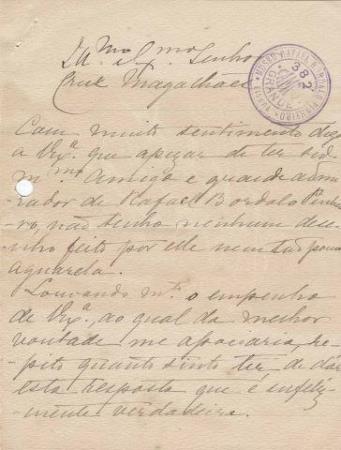 Ill.mo Ex.mo Senhor
Cruz Magalhães
MUSEU RAFAEL BORDALO PINHEIRO
382
Com muito sentimento digo
a Vex.a que apezar de ter sido
m.mo amigo e grande admi-
rador de Rafael Bordalo Pinhei-
ro, não tenho nenhum dese-
nho feito por elle nem tão pouco
aguarela.
Louvando m.to o empenho
de Vex.a, ao qual da melhor
vontade me apociaria, re-
pito quanto sinto ter de dár
esta resposta que é infeliz-
mente verdadeira.